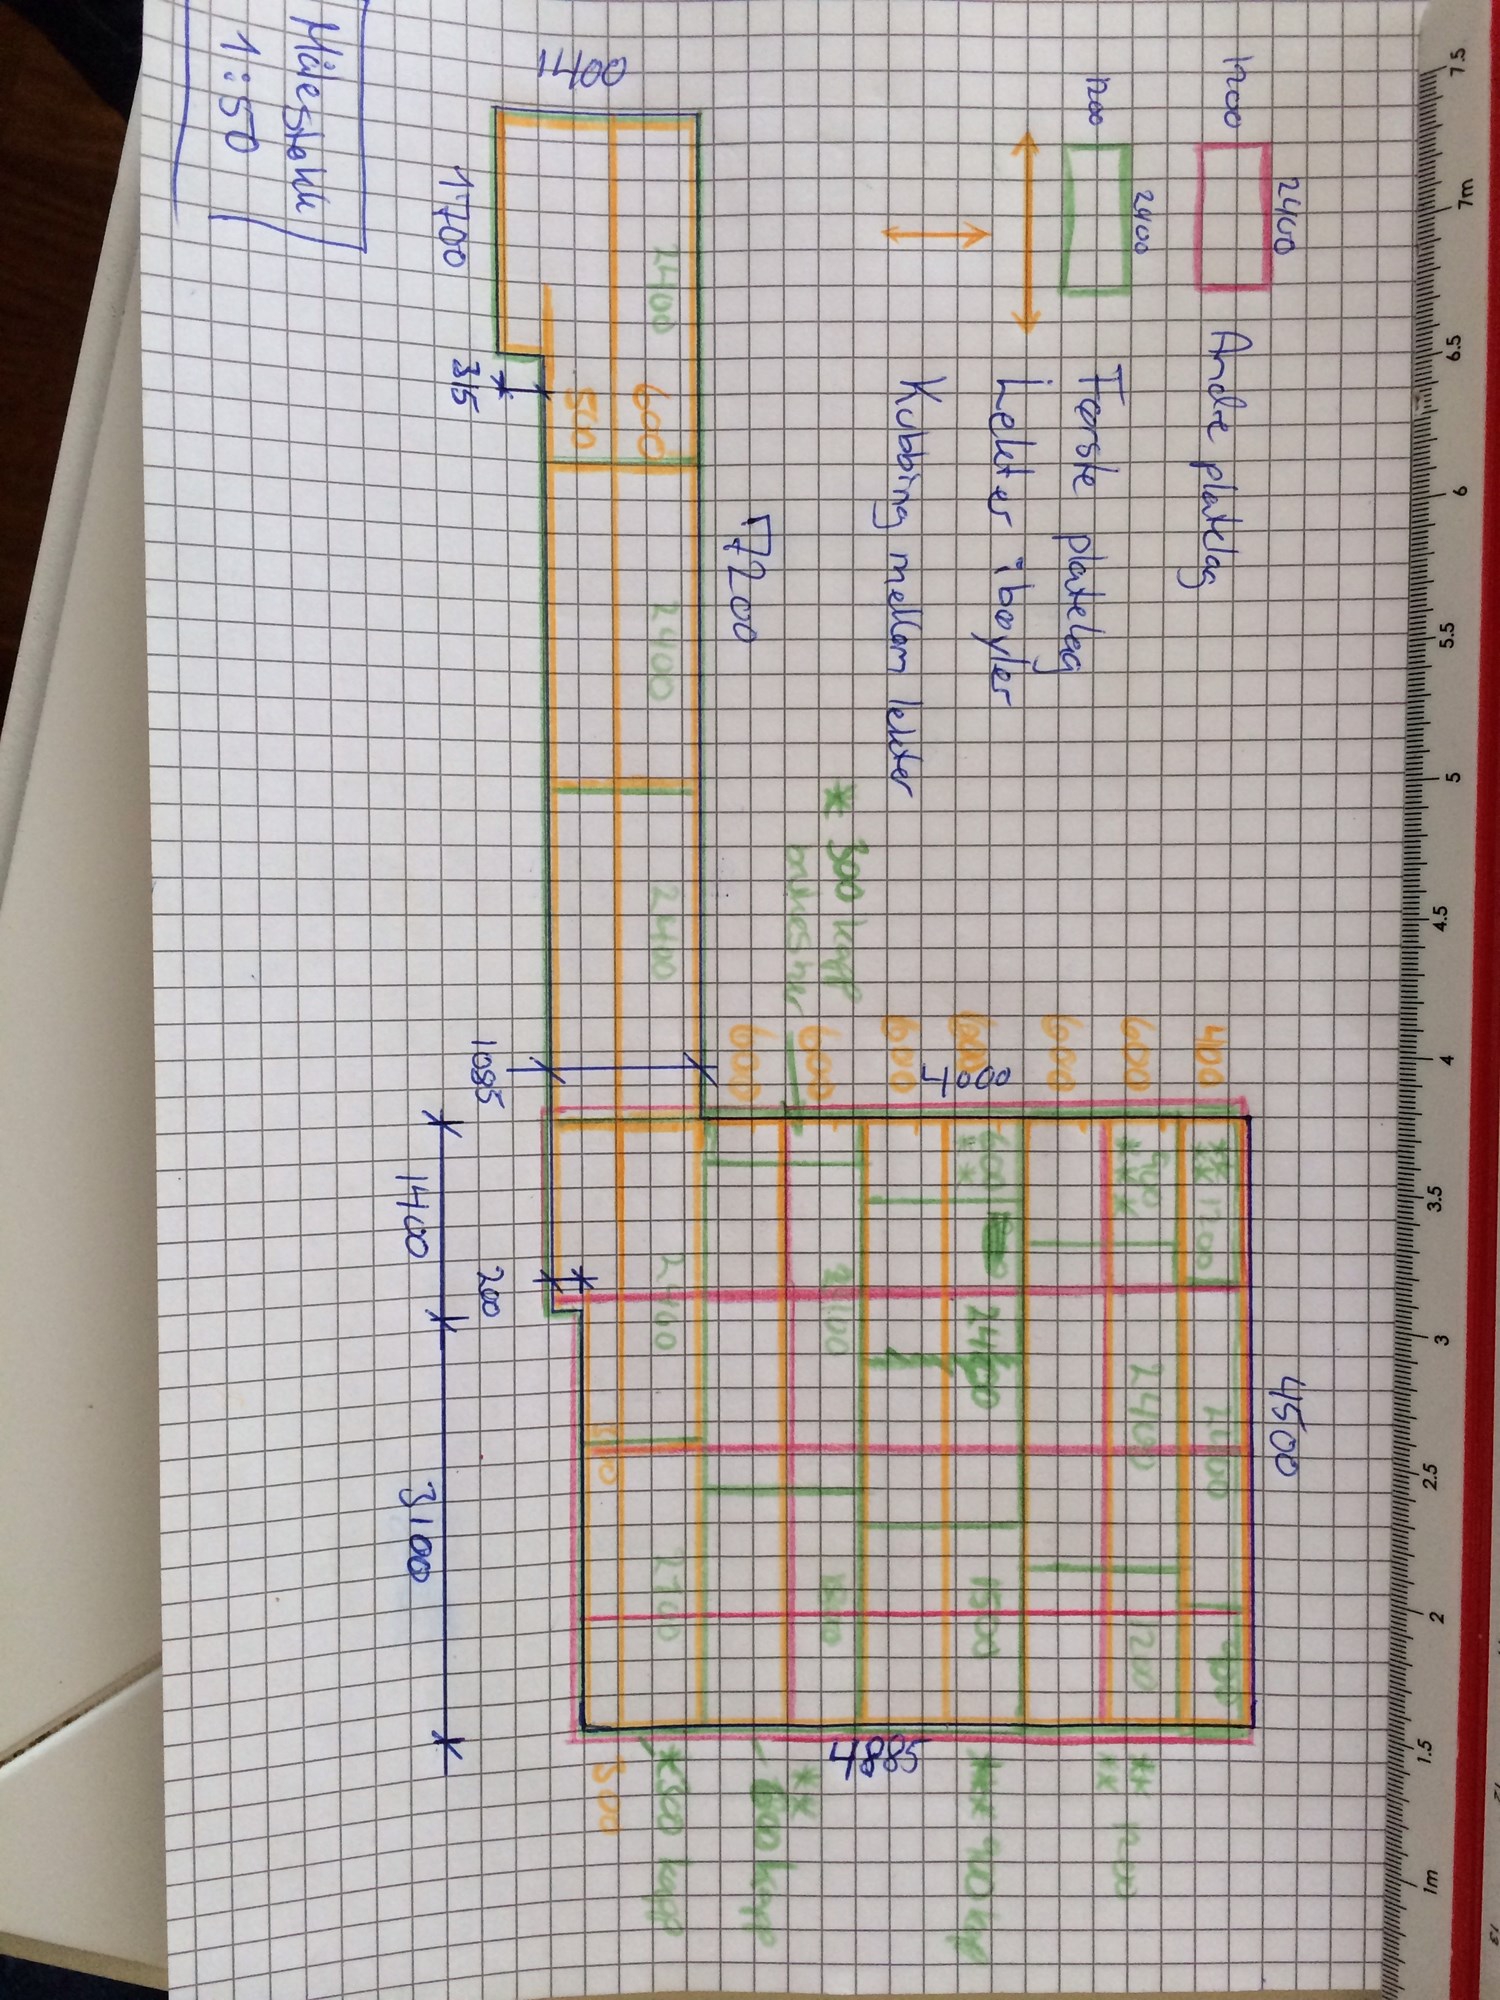 Målestokk
1:50
1200
2400
Andre platelag
1200
2400
Første platelag
Lekter i bøyler
Kubbing mellom lekter
1400
1700
315
7200
2400
600
500
2400
2400
* 300 kapp
1085
1400
200
3100
4000
4500
4885
400
600
600
600
600
600
600
** 1200
2400
900
***
2400
1200
600
**
2400
1500
2400
2400
500
** 1200
**
*** 900 kapp
**
600 kapp
* 300 kapp
7.5
7m
6.5
6
5.5
5
4.5
4
3.5
3
2.5
2
1.5
1m
13